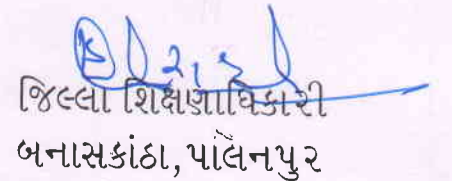 જિલ્લા શિક્ષણાધિકારી
બનાસકાંઠા,પાલનપુર